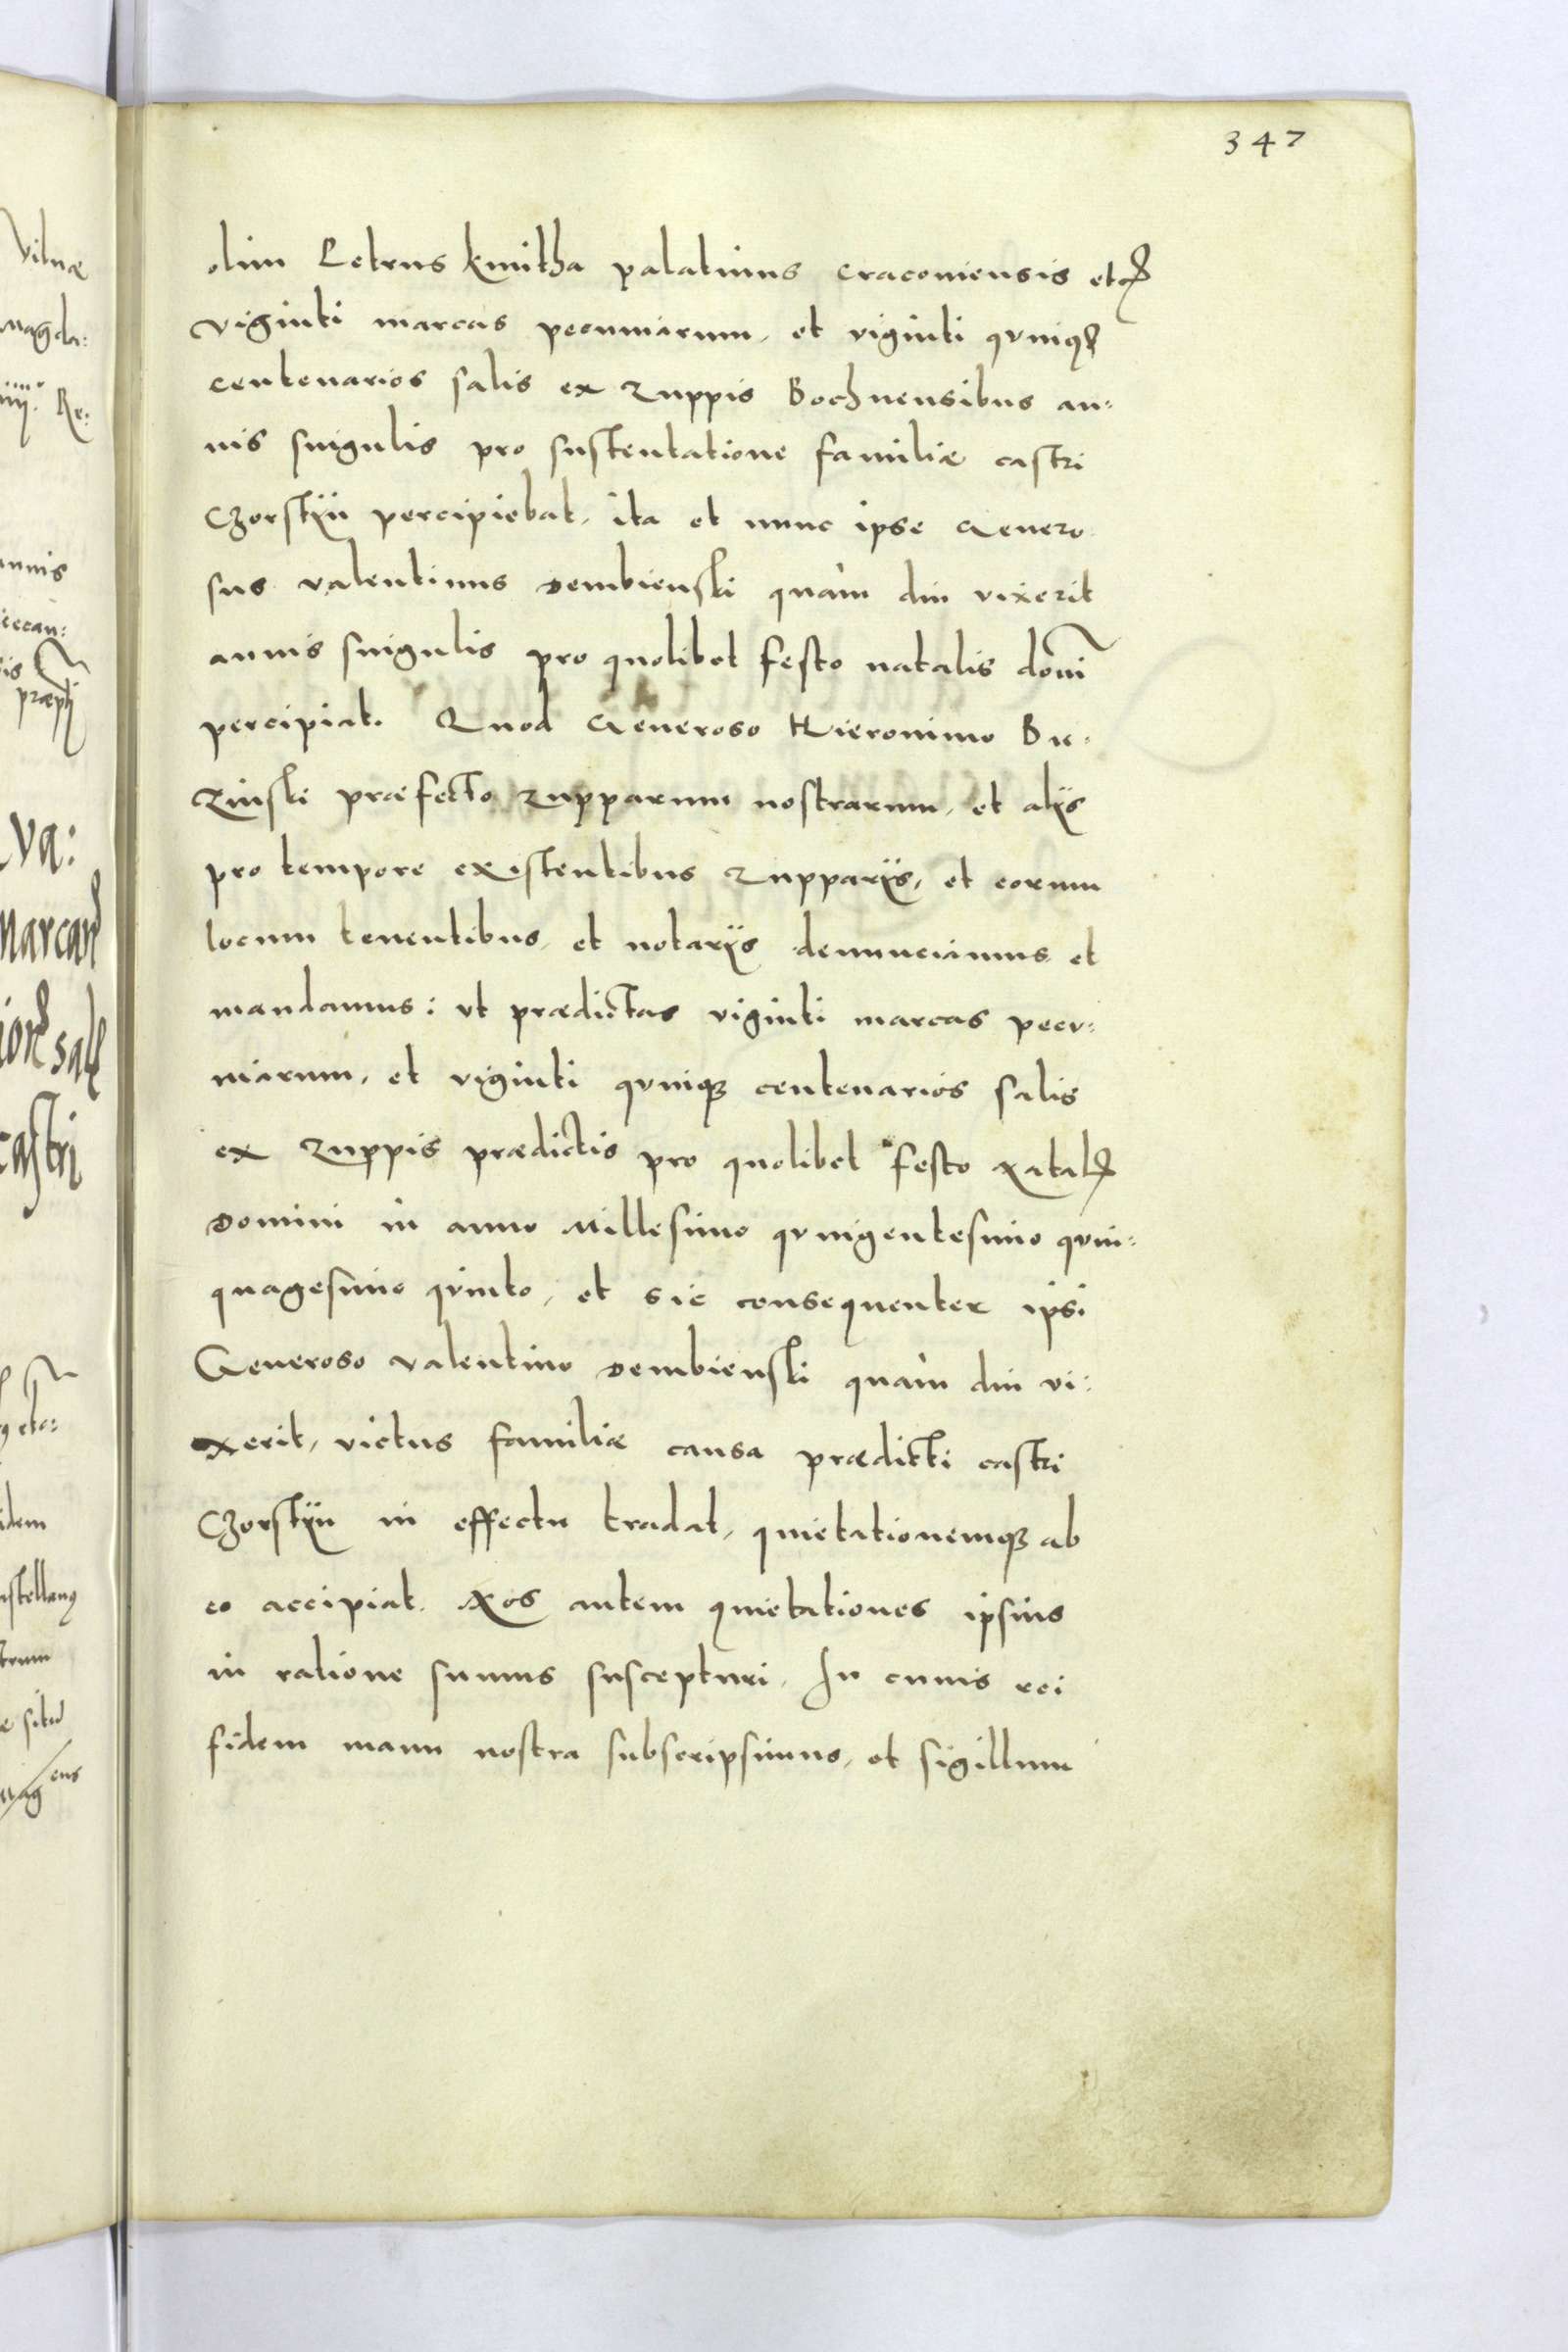 347
olim Petrus kmitha palatinus Cracoviensis etc
viginti marcas pecuniarum, et viginti quinque
centenarios salis ex Zuppis Bochnensibus an:
nis singulis pro sustentatione familiæ castri
Czorstÿn percipiebat, ita et nunc ipse Genero
sus valentinus Dembienski quàm diu vixerit
annis singulis pro quolibet festo natalis domi
percipiat. Quod Generoso Hieronimo Bu:
Zinski præfecto Zupparum nostrarum, et alÿs
pro tempore existentibus Zupparÿs, et eorum
locum tenentibus, et notarÿs denunciamus et
mandamus: ut prædictas viginti marcas pecu:
niarum, et viginti quinq3 centenarios salis
ex Zuppis prædictis pro quolibet festo Natalis
Domini in anno Millesimo quingentesimo quin:
quagesimo quinto, et sic consequenter ipsi
Generoso valentino Dembienski quàm diu vi:
xerit, victus familiæ causa prædicti castri
Czorstÿn in effectu tradat, quietationemq3 ab
eo accipiat. Nos autem quietationes ipsius
in ratione sumus suscepturi. In cuius rei
fidem manu nostra subscripsimus, et sigillum
Vilnæ
Magda:
Re:
annis
va:
Marcar
castri
idem